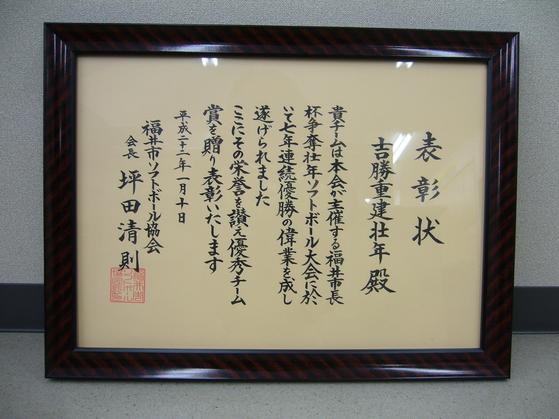 表彰状
吉勝重建壮年殿
貴チームは本会が主催する福井市長
杯争奪壮年ソフトボール大会に於
いて七年連続優勝の偉業を成し
遂げられました
ここにその栄誉を讃え優秀チーム
賞を贈り表彰いたします
平成二十二年一月十日
福井市ソフトボール協会
会長 坪田清則